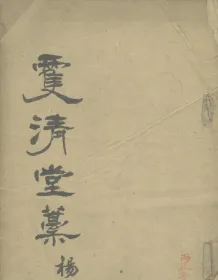 䨇清堂藁
楊